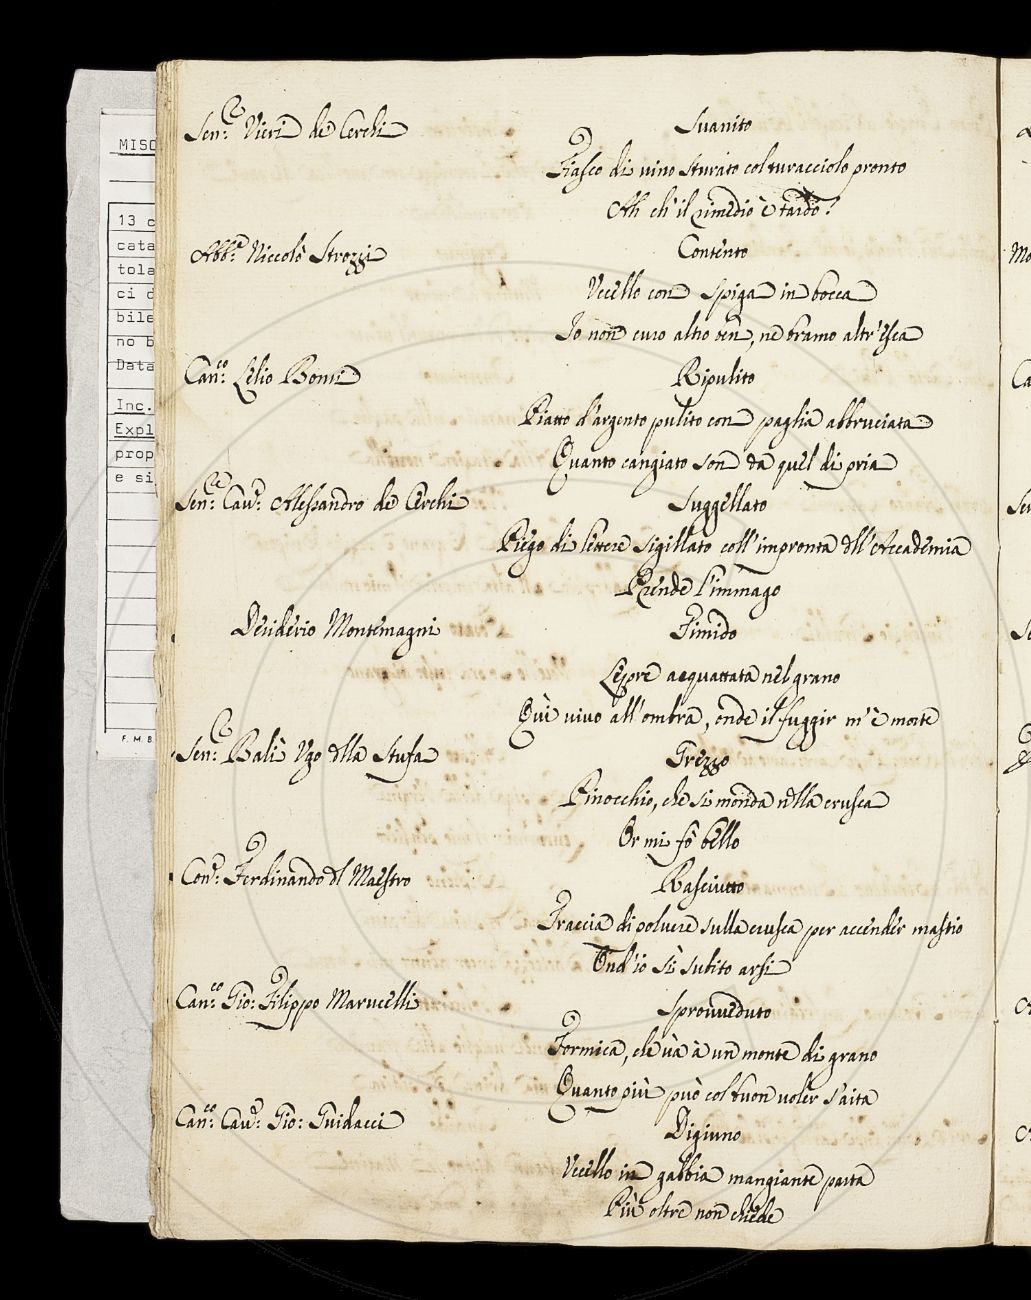 MISC
13 c
cata
tola
ci d
bile
no b
Data
Inc.
Expl
prop
e si
F. M. B.
Sen.re Vieri de Cerchi
Svanito
Fiasco di vino sturato col turacciolo pronto
Ah ch'il rimedio è tardo!
Abb.e Niccolò Strozzi
Contento
Vccello con spiga in bocca
Io non curo altro ben, nè bramo altr'esca
Can.co Lelio Bonsi
Ripulito
Piatto d'argento pulito con paglia abbruciata
Quanto cangiato son da quel di pria
Sen.re Cav.e Alessandro de Cerchi
Suggellato
Piego di lettere sigillato coll'impronta dell'Accademia
Prende l'immago
Desiderio Montemagni
Timido
Lepre acquattata nel grano
Quì vivo all'ombra, onde il fuggir m'è morte
Sen.re Balì Vgo della Stufa
Grezzo
Pinocchio, che si monda nella crusca
Or mi fò bello
Cav.e Ferdinando del Maestro
Rasciutto
Traccia di polvere sulla crusca per accender mastio
Ond'io sì subito arsi
Can.co Gio: Filippo Marucelli
Sprovveduto
Formica, che và à un monte di grano
Quanto più può col buon voler s'aita
Can.co Cav.e Gio: Guidacci
Digiuno
Vccello in gabbia mangiante pasta
Più oltre non chiede